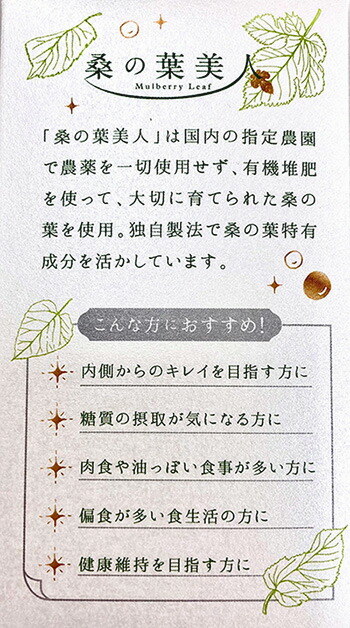 桑の葉美人
Mulberry Leaf
「桑の葉美人」は国内の指定農園
で農薬を一切使用せず、有機堆肥
を使って、大切に育てられた桑の
葉を使用。独自製法で桑の葉特有
成分を活かしています。
こんな方におすすめ!
内側からのキレイを目指す方に
糖質の摂取が気になる方に
肉食や油っぽい食事が多い方に
偏食が多い食生活の方に
健康維持を目指す方に